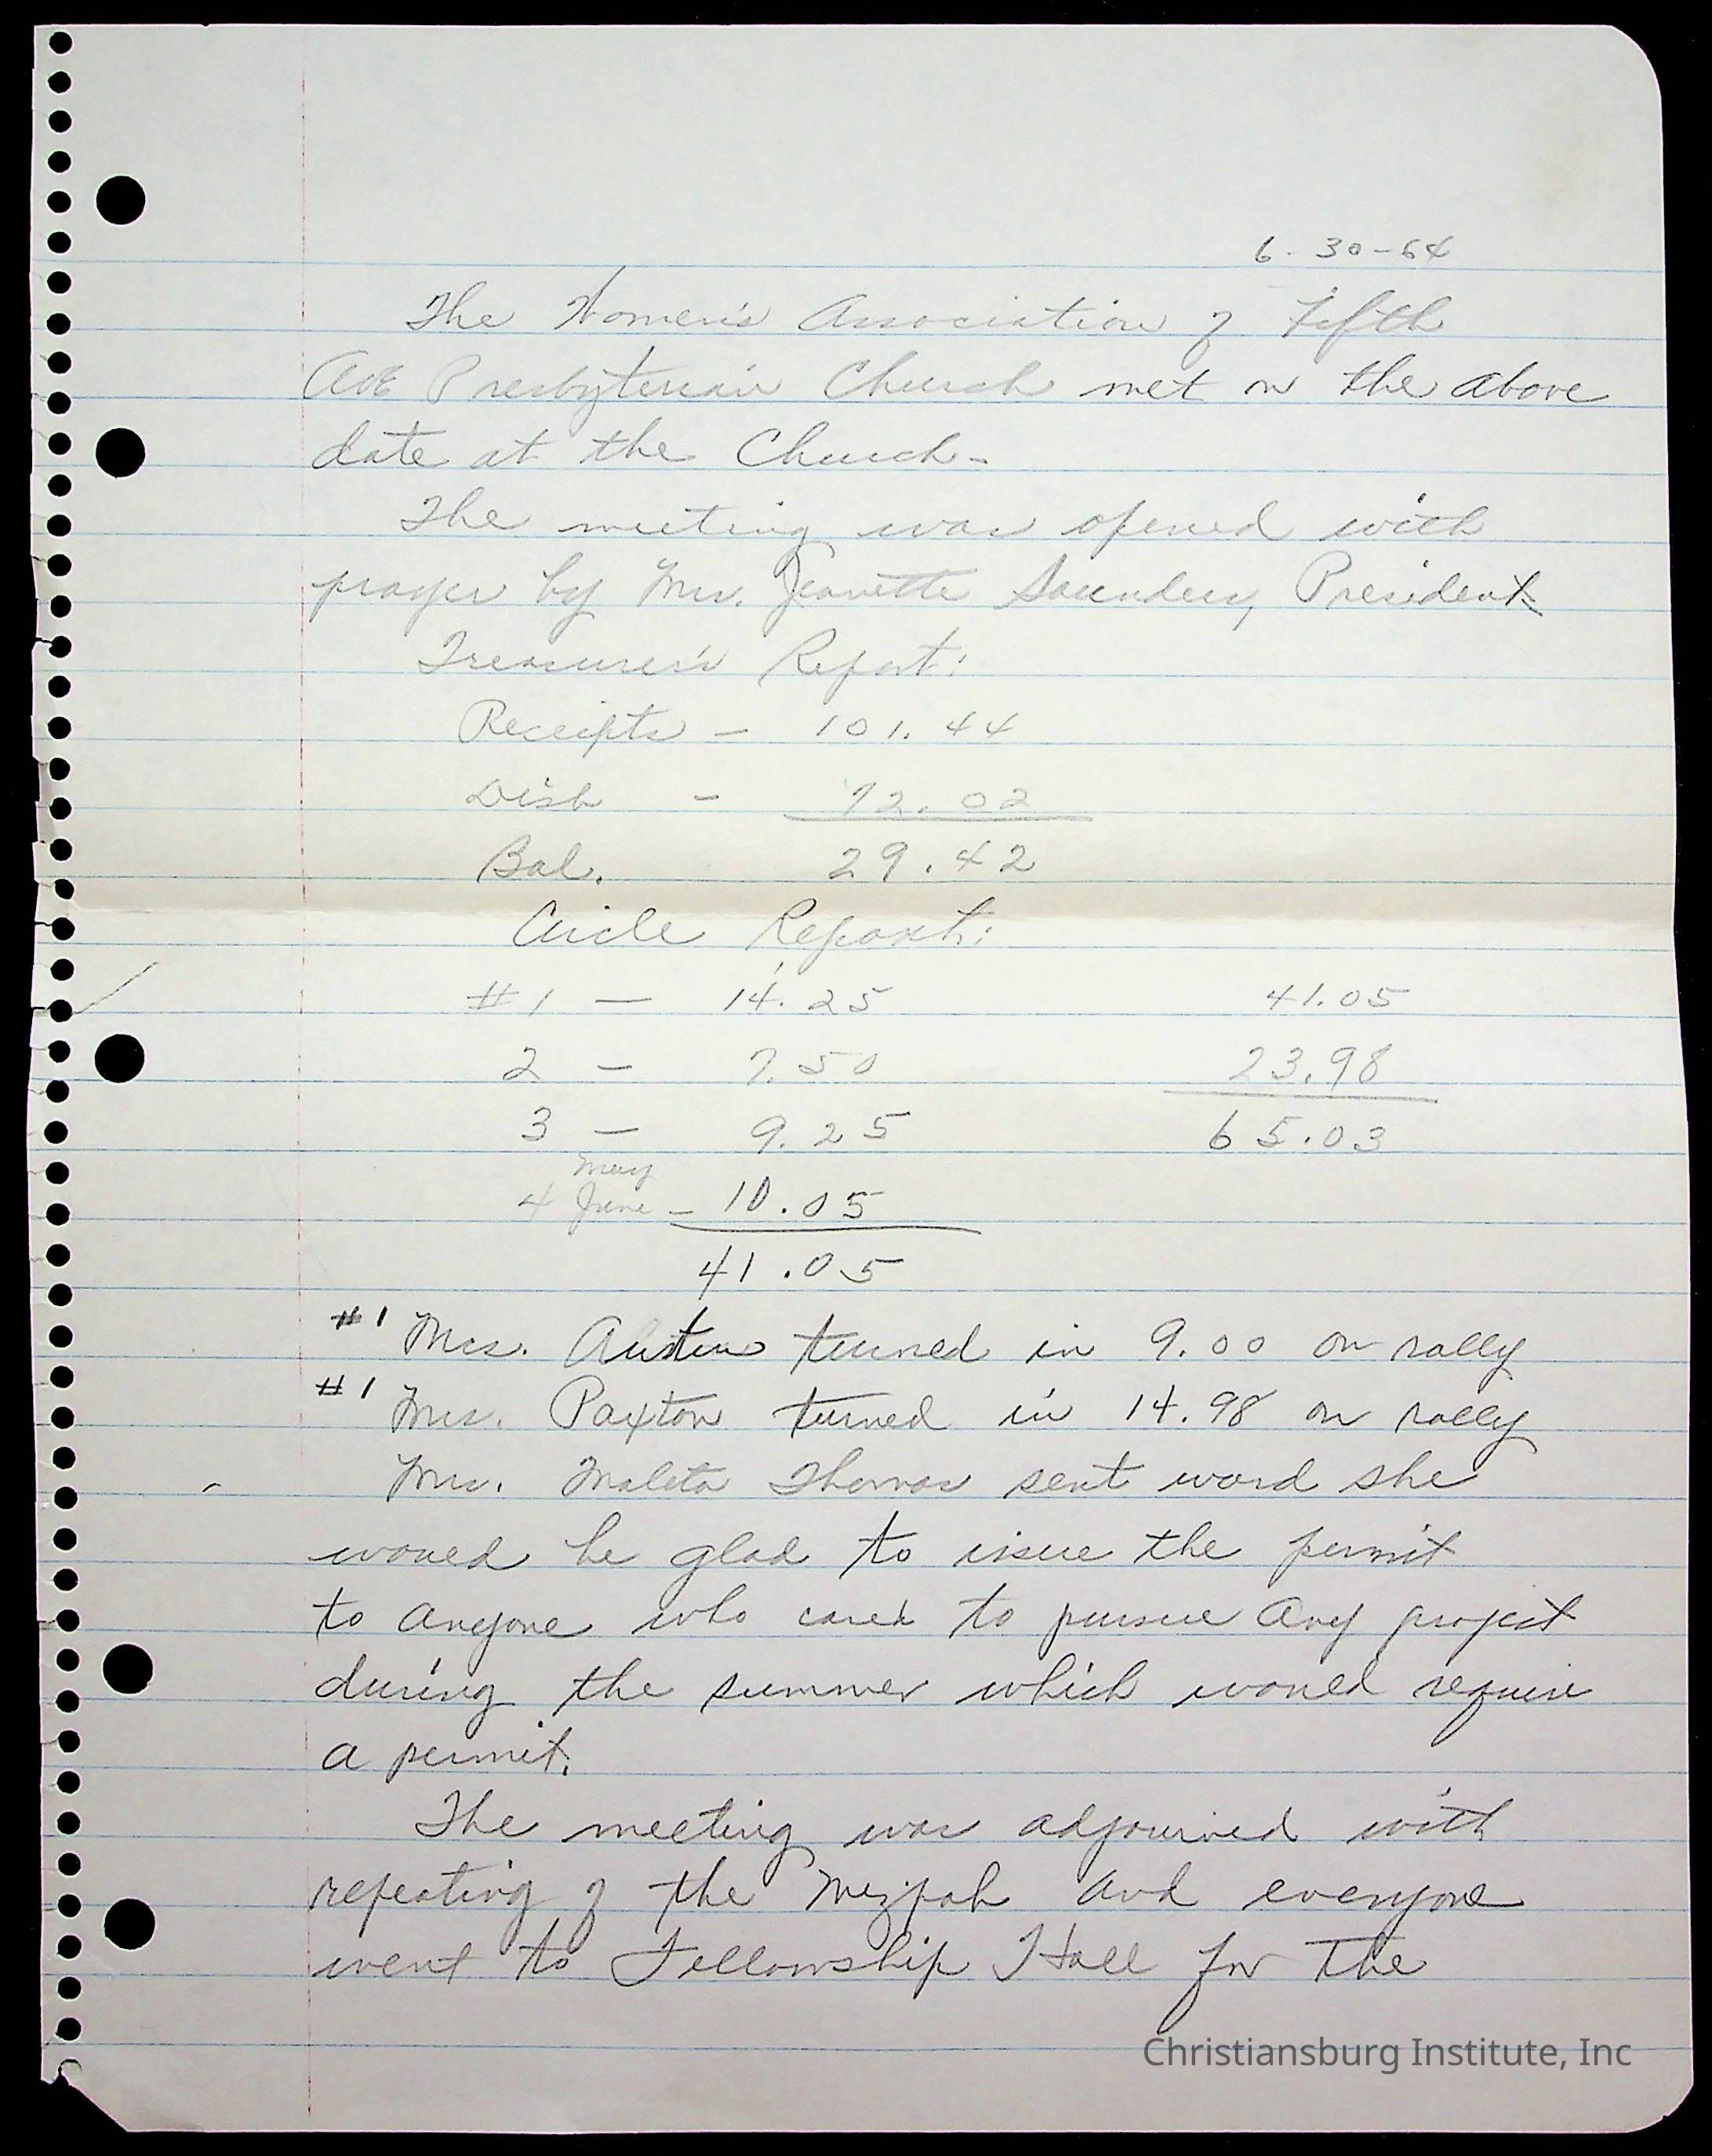 6-30-64
The Women's Association of Fifth
Ave Presbyterian Church met on the above
date at the Church-
The meeting was opened with
prayer by Mrs. Jeanette Saunders, President
Treasurer's Report:
Receipts - 101.44
Disb - 72.02
Bal. 29.42
Circle Report:
#1 — 14.25 41.05
2 — 7.50 23.98
3 — 9.25 65.03
May
4 June - 10.05
41.05
#1 Mrs. Austin turned in 9.00 on rally
#1 Mrs. Paxton turned in 14.98 on rally
Mrs. Maleta Thomas sent word she
would be glad to issue the permit
to anyone who cared to pursue any project
during the summer which would require
a permit.
The meeting was adjourned with
repeating of the Mizpah and everyone
went to Fellowship Hall for the
Christiansburg Institute, Inc